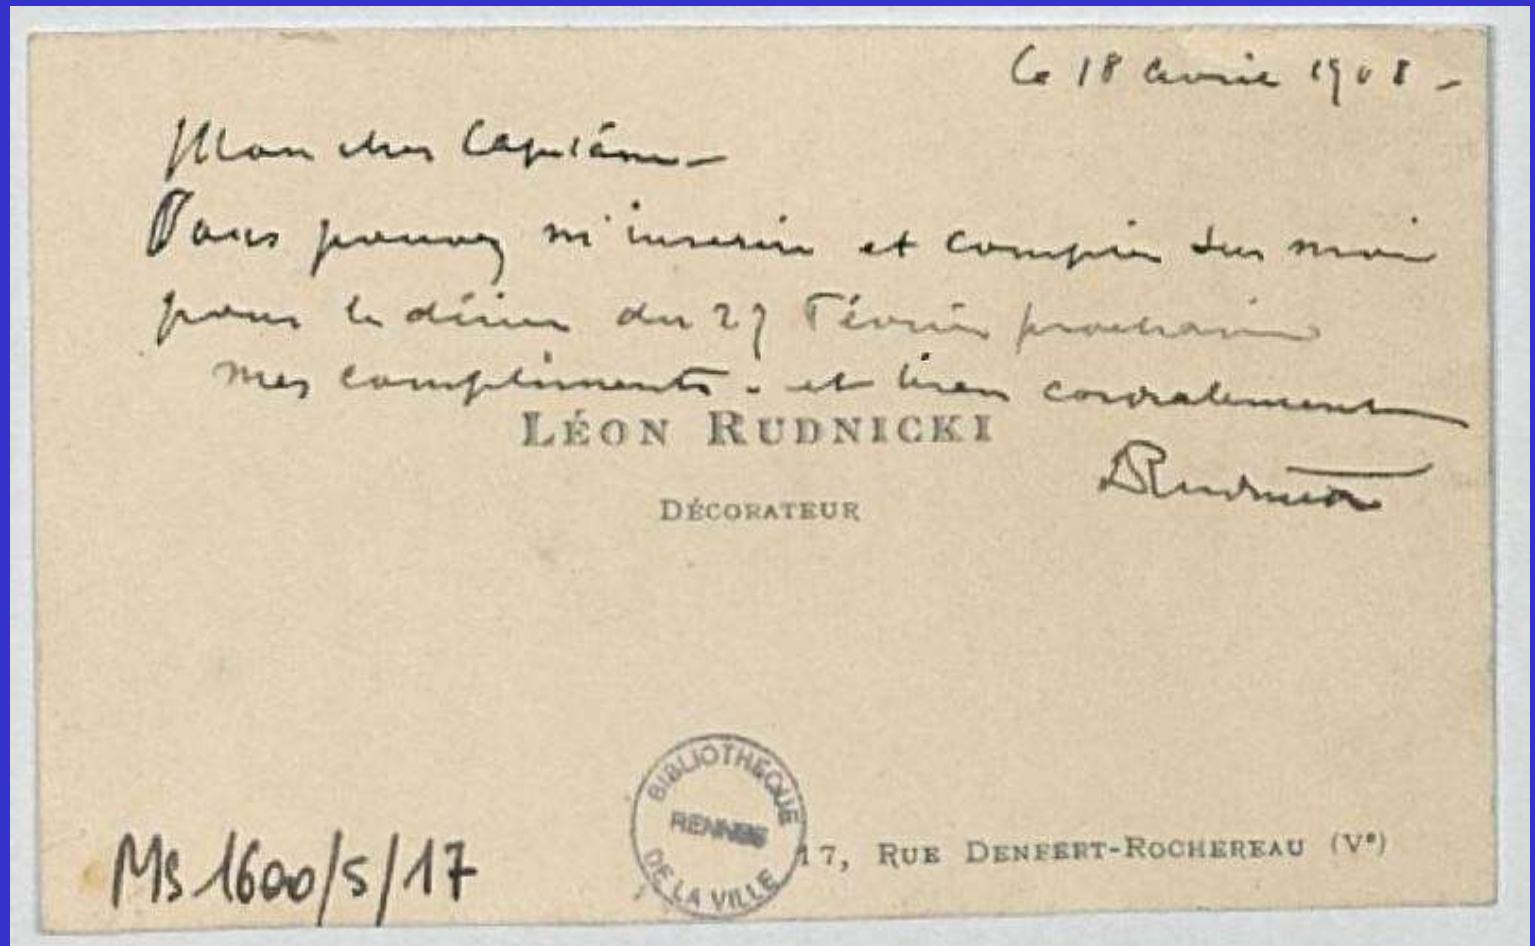 Le 18 avril 1908 -
Mon cher Capitaine -
Vous pouvez m'inscrire et compter sur moi
pour le diner du 27 Février prochain
mes compliments - et bien cordialement
LÉON RUDNICKI
LRudnicki
DÉCORATEUR
BIBLIOTHEQUE
RENNES
DE LA VILLE
17, RUE DENFERT-ROCHEREAU (Ve)
Ms 1600/5/17